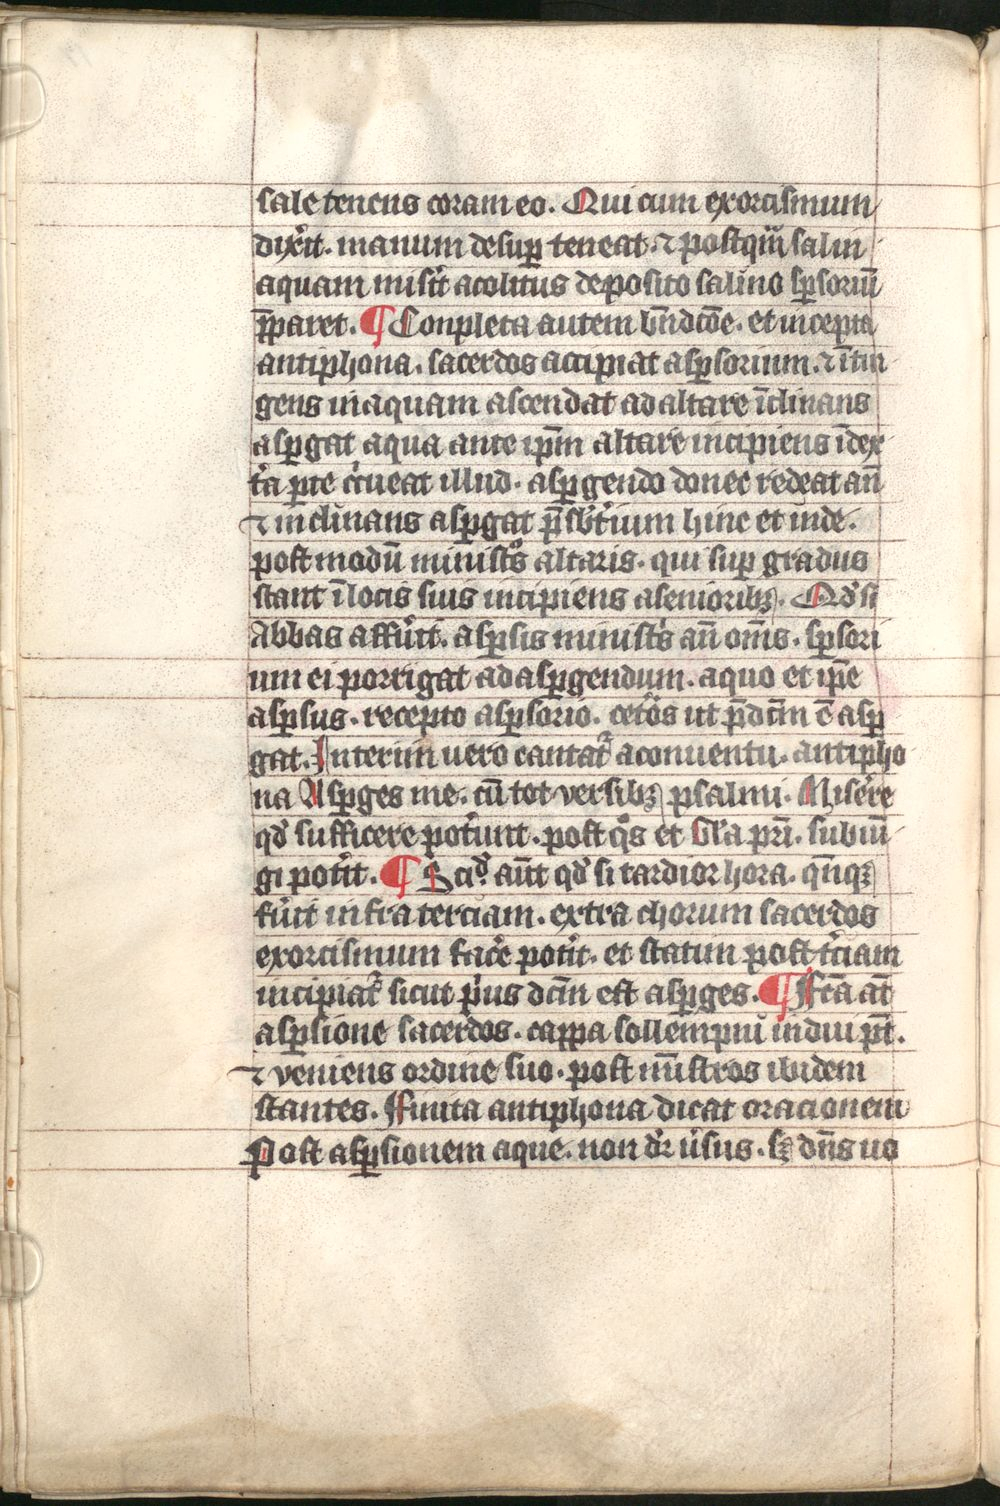 sale tenens coram eo. Qui cum exorcismum
dix̾it. manum desuꝑ teneat. ⁊ postqͣm sal in
aquam mis̾it acolitus deposito salino sꝑsoriū
p̄paret. ¶ Conpleta autem bn̄dcōe. et incepta
antiphona. sacerdos accipiat asꝑsorium. ⁊ ītin
gens in aquam ascendat ad altare īclinans
asꝑgat aqua ante ip̄m altare incipiens ī dex
t̾a ꝑte c̾cueat illud. asꝑgendo donec redeat an̄
⁊ inclinans asꝑgat p̄sbit̾ium hinc et inde.
post modū minist̾os altaris. qui suꝑ gradus
stant ī locis suis incipiens a senioribꝫ. Qd̾ si
Abbas affu̾it. asꝑsis minist̾s an̄ om̄s. sꝑsori
um ei porrigat ad asꝑgendum. a quo et ip̄e
asꝑsus. recepto asꝑsorio. cet̾os ut p̄dcm̄ ē asꝑ
gat. Interim uero cantat᷑ a conuentu. antipho
na Asꝑges me. cū tot versibꝫ psalmi. Mise̾re
qd̾ sufficere pot̾unt. post qͦs et Gl̾a pr̄i. subiū
gi pot̾it. ¶ Sciᵈ. aūt qd̾ si tardior hora. qn̄qꝫ
fu̾it infra terciam. extra chorum sacerdos
exorcismum fac̾e pot̾it. et statim post t̾ciam
incipiat᷑ sicut p̾us dcm̄ est asꝑges. ¶ Fcā at̄
asꝑsione sacerdos. cappa sollempni indui pt̄.
⁊ veniens ordine suo. post mīstros ibidem
stantes. Finita antiphona dicat oracionem
Post asꝑsionem aque. non dr̾ u̾sus. sꝫ dn̄s uo